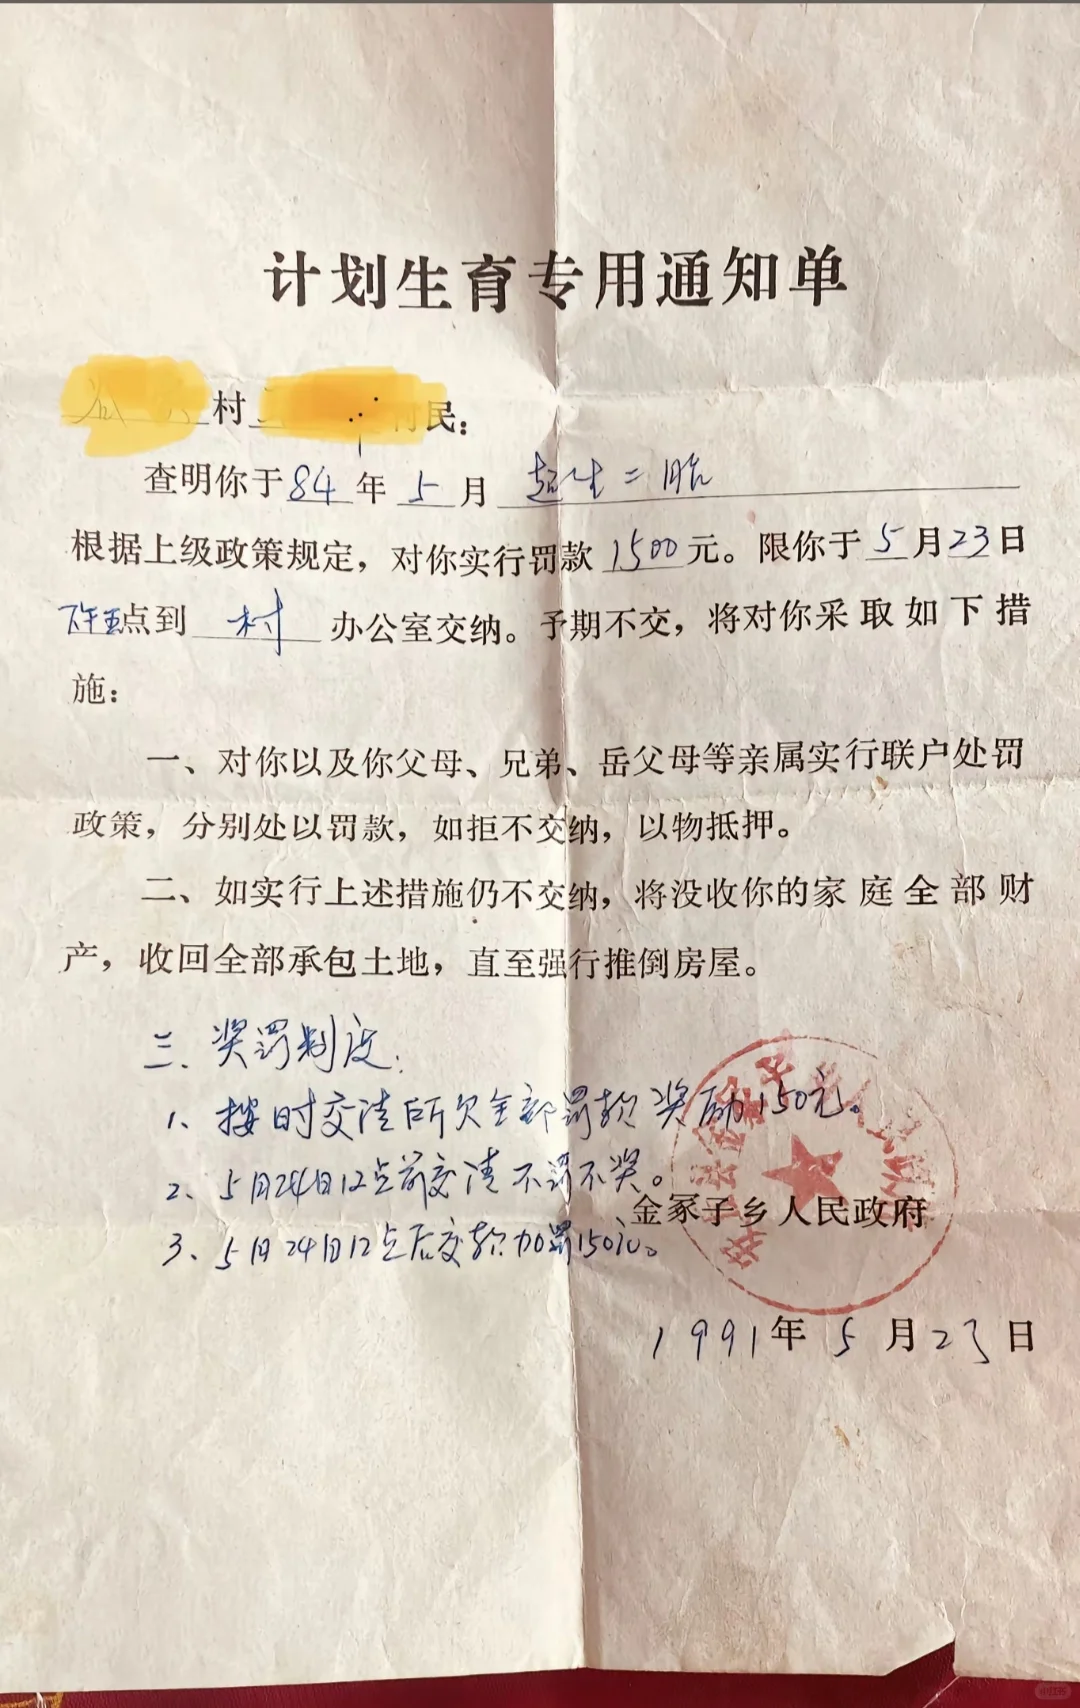 计划生育专用通知单
村 村民：
查明你于84年5月超生二胎
根据上级政策规定，对你实行罚款1500元。限你于5月23日
下午五点到村办公室交纳。予期不交，将对你采取如下措
施：
一、对你以及你父母、兄弟、岳父母等亲属实行联户处罚
政策，分别处以罚款，如拒不交纳，以物抵押。
二、如实行上述措施仍不交纳，将没收你的家庭全部财
产，收回全部承包土地，直至强行推倒房屋。
三、奖罚制度：
1、按时交清所欠全部罚款奖励150元。
2、5月24日12点前交清不罚不奖。
金冢子乡人民政府
3、5月24日12点后交款加罚150元。
1991年5月23日